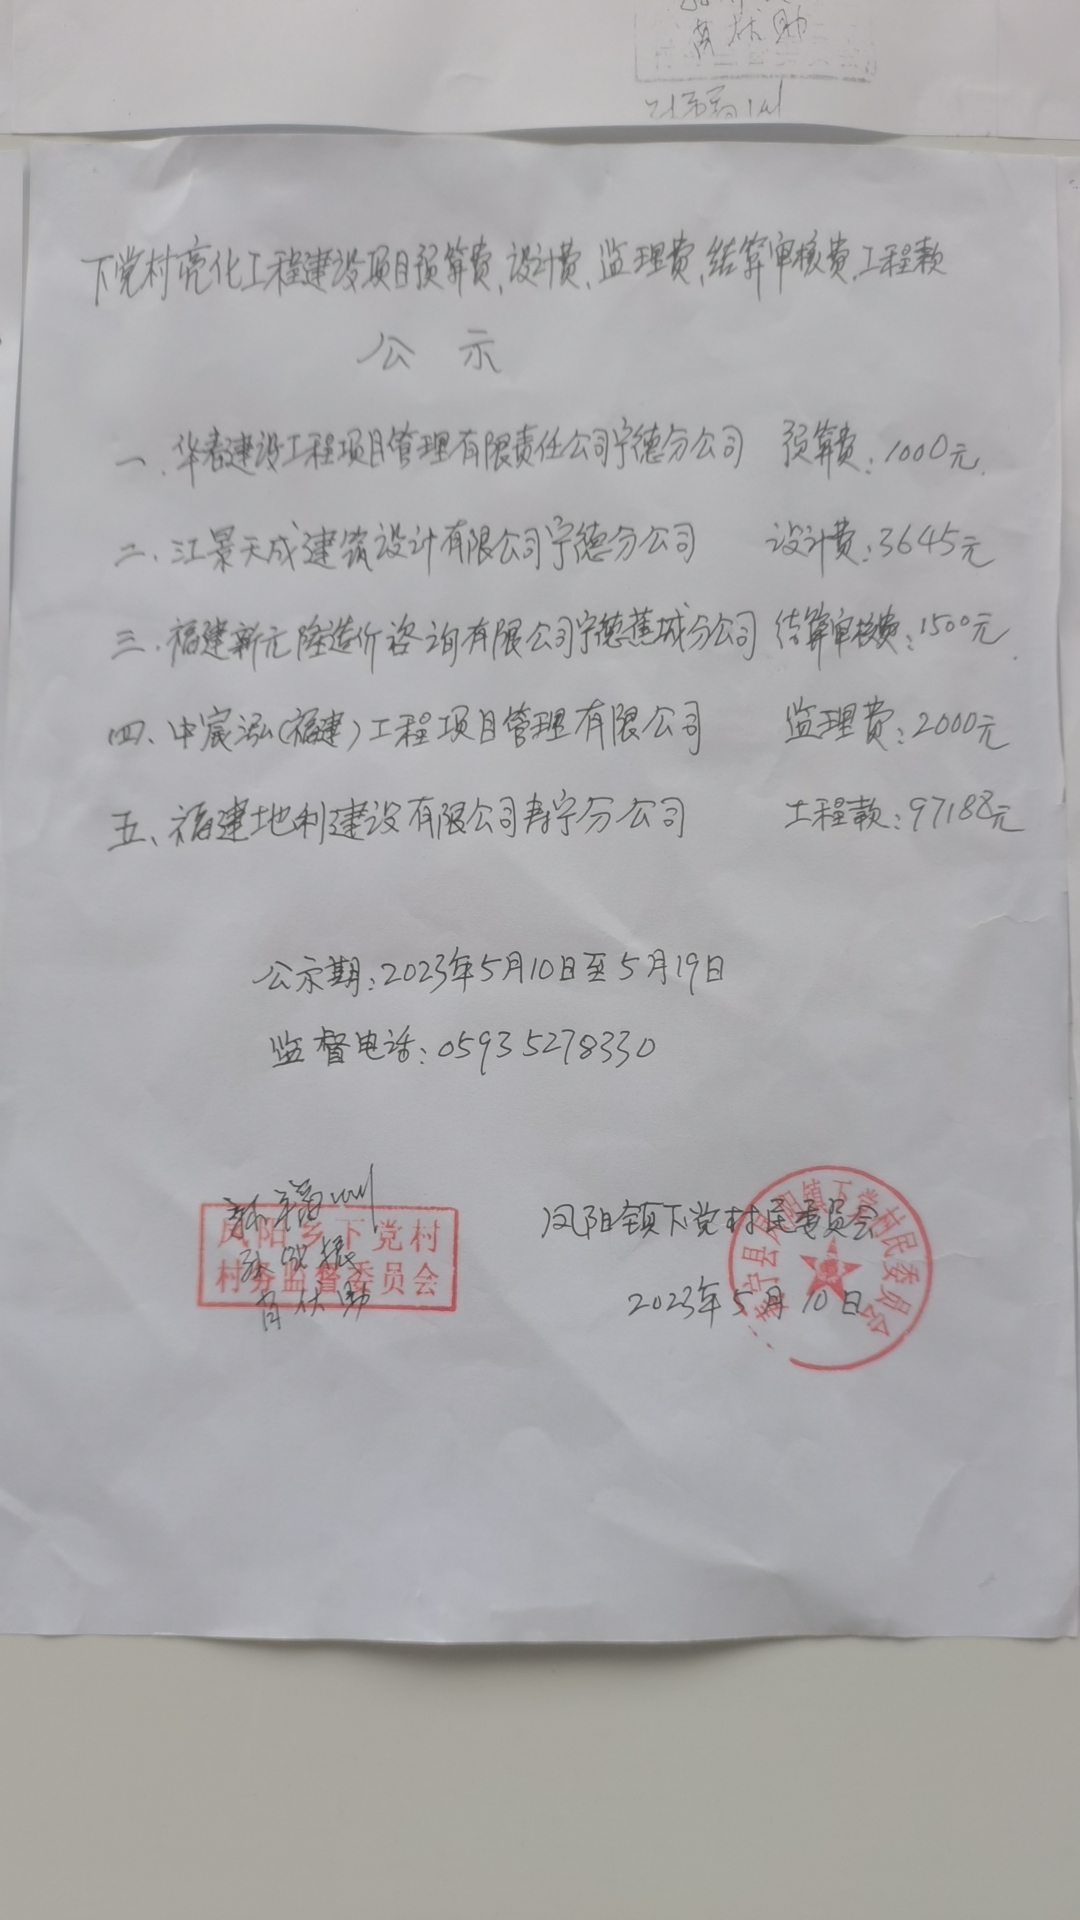 下党村亮化工程建设项目预算费、设计费、监理费、结算审核费、工程款
公示
一、华春建设工程项目管理有限责任公司宁德分公司 预算费：1000元
二、江景天成建筑设计有限公司宁德分公司 设计费：3645元
三、福建新元隆造价咨询有限公司宁德蕉城分公司 结算审核费：1500元
四、中宸泓(福建)工程项目管理有限公司 监理费：2000元
五、福建地利建设有限公司寿宁分公司 工程款：97188元
公示期：2023年5月10日至5月19日
监督电话：05935278330
凤阳乡下党村
村务监督委员会
凤阳镇下党村民委员会
2023年5月10日
寿宁县凤阳镇下党村民委员会